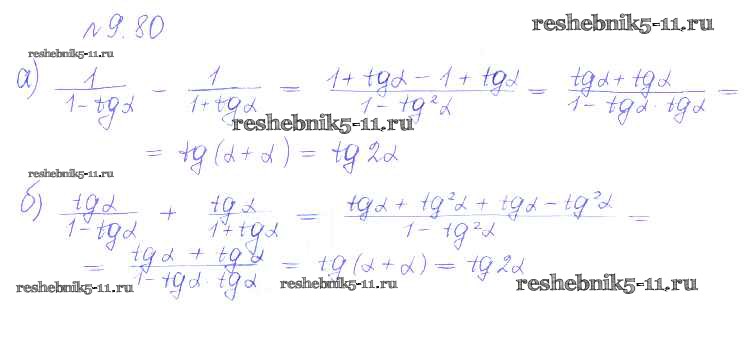 №9.80
reshebnik5-11.ru
reshebnik5-11.ru
а) 1/(1-tgα) - 1/(1+tgα) = (1+tgα-1+tgα)/(1-tg²α) = (tgα+tgα)/(1-tgα·tgα) =
reshebnik5-11.ru
= tg(α+α) = tg2α
reshebnik5-11.ru
б) tgα/(1-tgα) + tgα/(1+tgα) = (tgα+tg²α+tgα-tg²α)/(1-tg²α) =
= (tgα+tgα)/(1-tgα·tgα) = tg(α+α) = tg2α
reshebnik5-11.ru
reshebnik5-11.ru
reshebnik5-11.ru